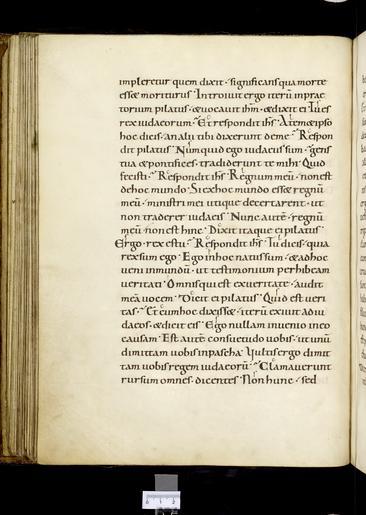 impleretur quem dixit · significans qua morte
esset moriturus · Introiuit ergo iterū in prae
torium pilatus · & uocauit ihm̄ · & dixit ei Tu es
rex iudaeorum · Et respondit ihs̄ A temetipso
hoc dicis · an alii tibi dixerunt de me · Respon
dit pilatus Numquid ego iudaeus sum · gens
tua & pontifices · tradiderunt te mihi Quid
fecisti · Respondit ihs̄ Regnum meū · non est
de hoc mundo Si ex hoc mundo esset regnū
meū · ministri mei utique decertarent · ut
non traderer iudaeis Nunc autē · regnū
meū non est hinc · Dixit itaque ei pilatus
Ergo · rex es tu · Respondit ihs̄ Tu dicis · quia
rex sum ego · Ego in hoc natus sum · & ad hoc
ueni in mundū · ut testimonium perhibeam
ueritati · Omnis qui est ex ueritate · audit
meā uocem · Dicit ei pilatus Quid est ueri
tas · Et cum hoc dixisset · iterū exiuit ad iu
daeos · & dicit eis Ego nullam inuenio in eo
causam · Est autē consuetudo uobis · ut unū
dimittam uobis in pascha · Vultis ergo dimit
tam uobis regem iudaeorū · Clamauerunt
rursum omnes · dicentes Non hunc · sed